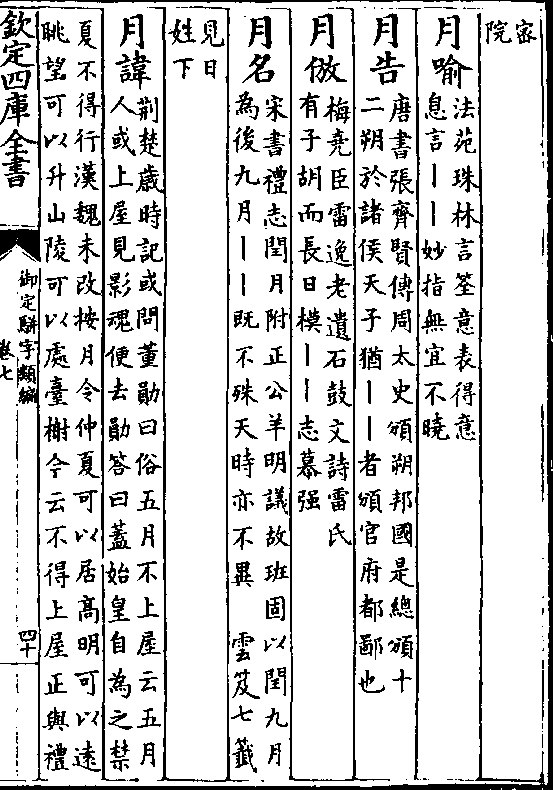 密
院
月喻
法苑珠林言筌意表得意
息言丨丨妙指無宜不曉
月告
唐書張齊賢傳周太史頒朔邦國是總頒十
二朔於諸侯天子猶丨丨者頒官府都鄙也
月倣
梅堯臣雷逸老遺石鼓文詩雷氏
有子胡而長日模丨丨志慕强
月名
宋書禮志閏月附正公羊明議故班固以閏九月
為後九月丨丨既不殊天時亦不異 雲笈七籤
見日
姓下
月諱
荆楚歲時記或問董勛曰俗五月不上屋云五月
人或上屋見影魂便去勛答曰蓋始皇自為之禁
夏不得行漢魏未改按月令仲夏可以居髙明可以逺
眺望可以升山陵可以處臺榭今云不得上屋正與禮
欽定四庫全書
御定駢字類編
卷七
四十